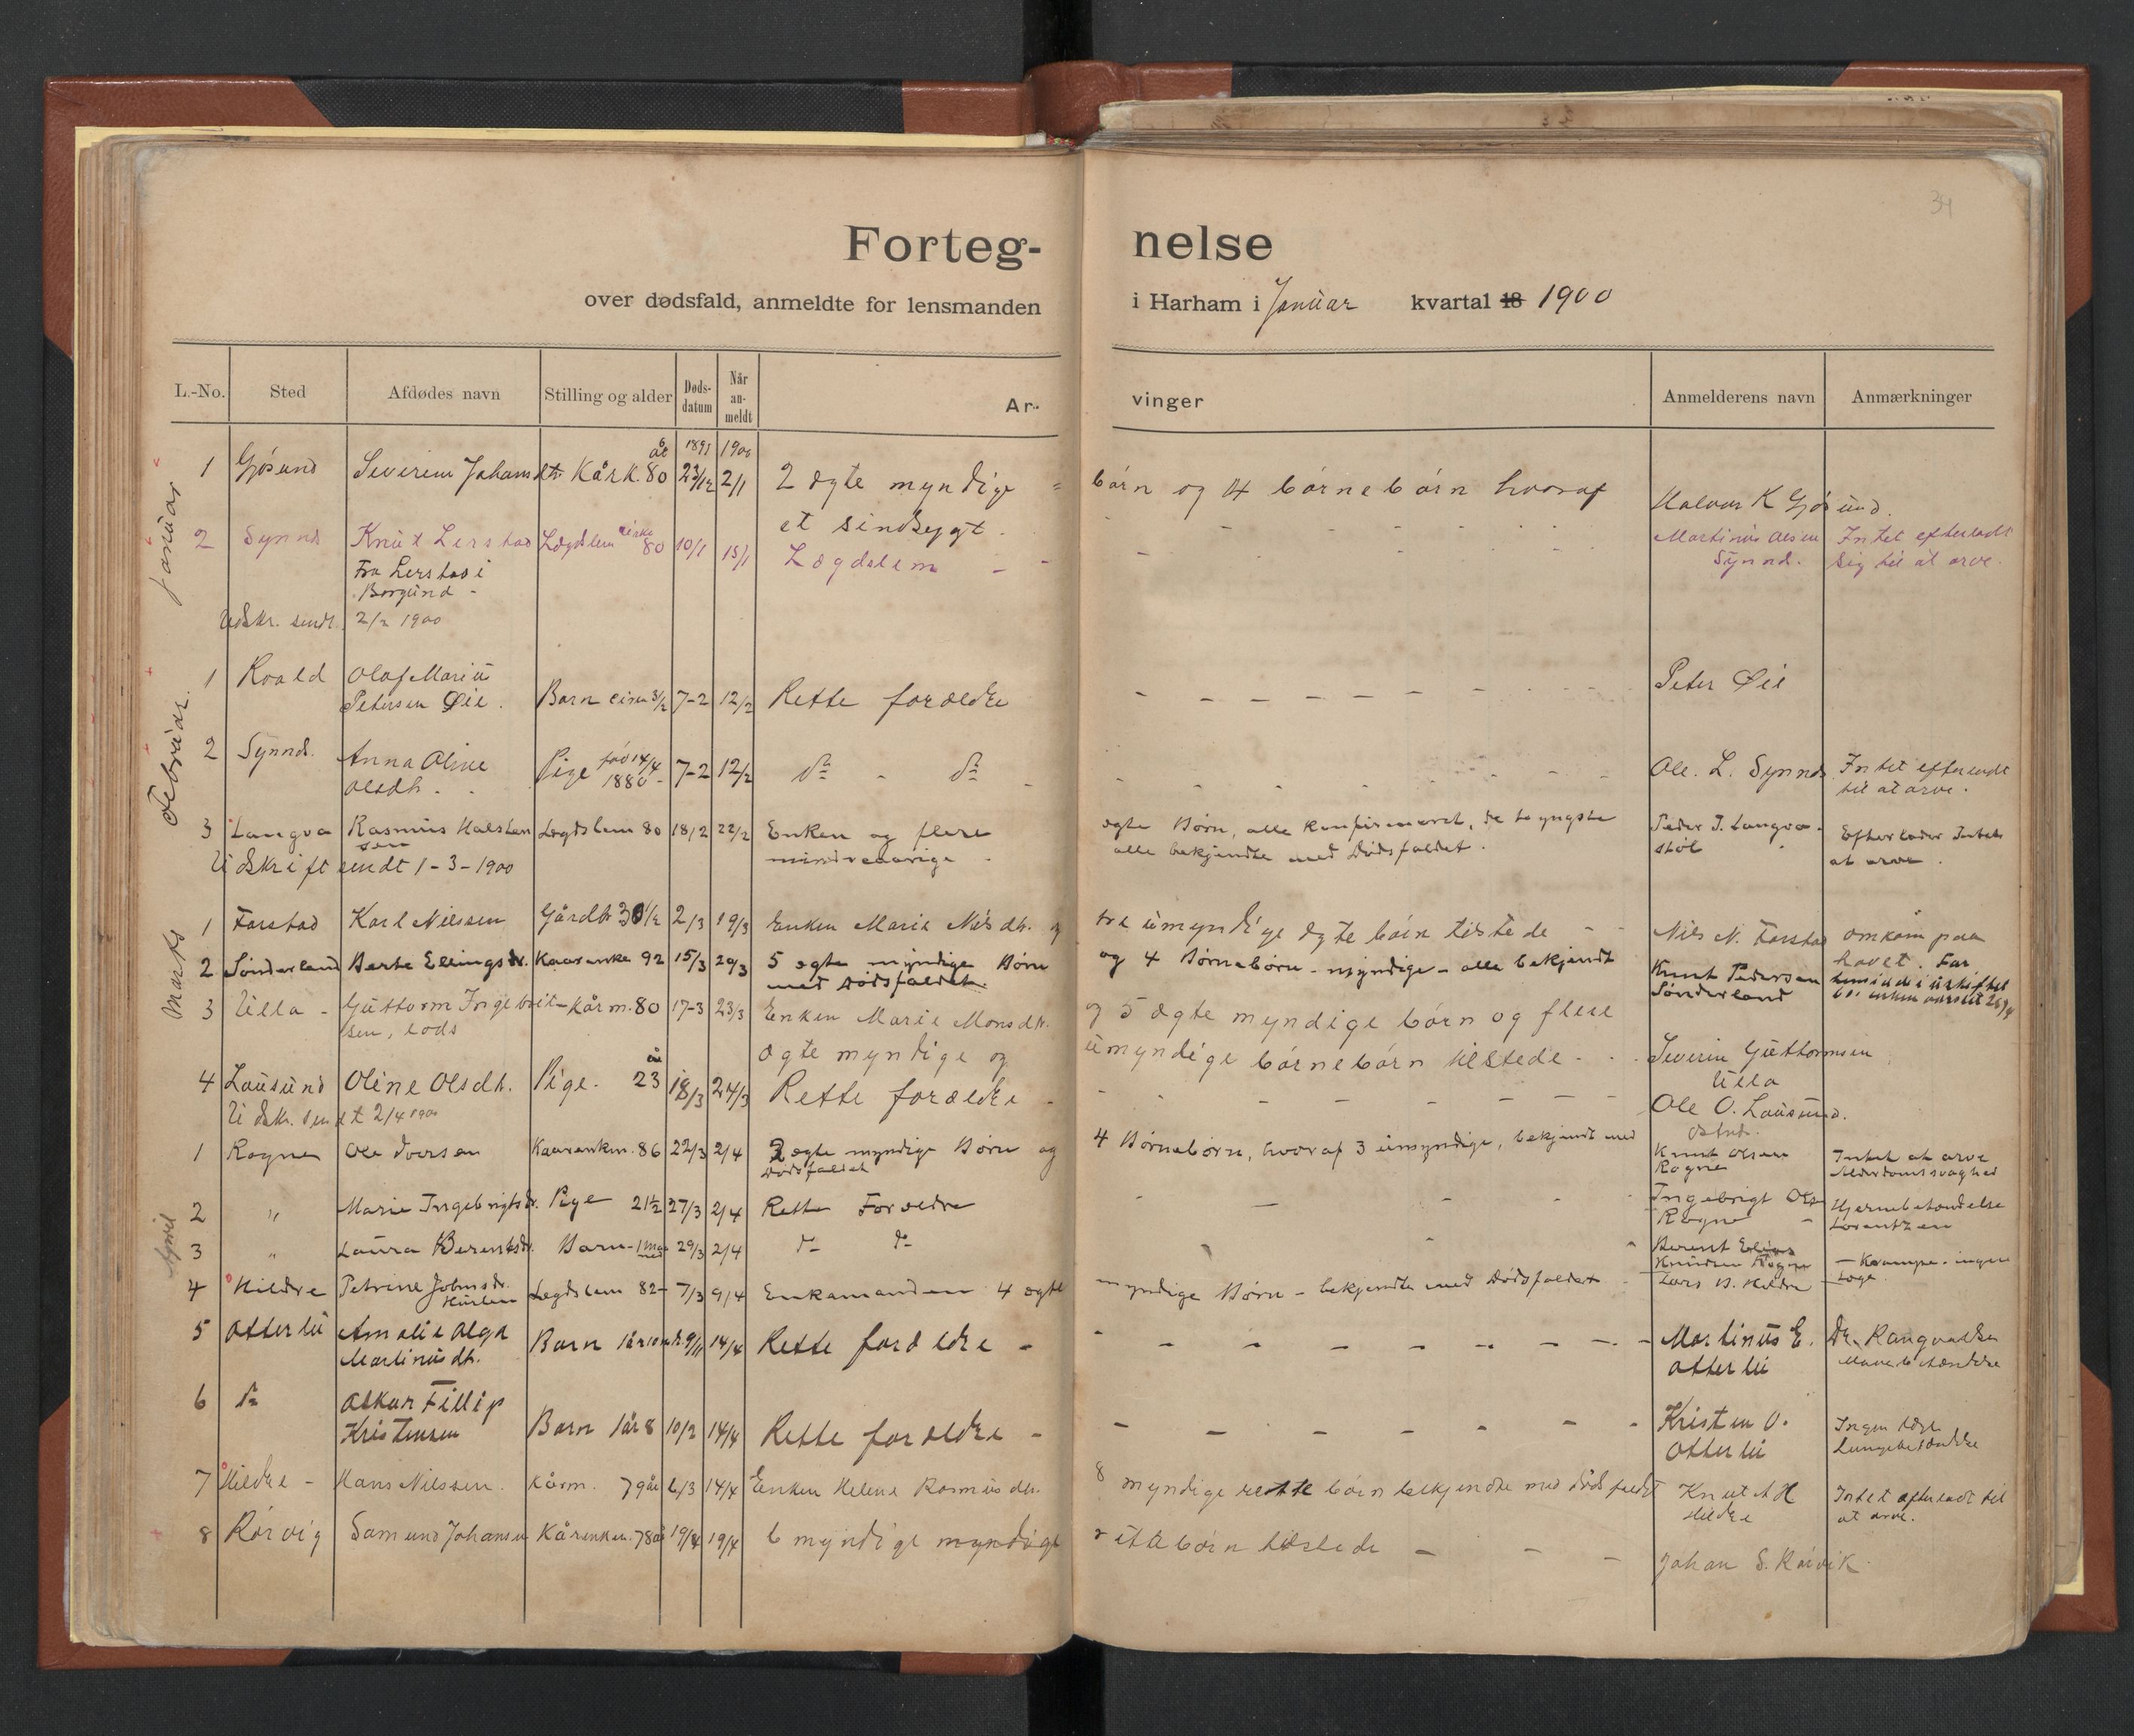 34
Forteg-nelse
over dødsfald, anmeldte for lensmanden i Harham i Januar kvartal 18 1900
L.-No. Sted Afdødes navn Stilling og alder Døds-datum Når an-meldt Ar-vinger Anmelderens navn Anmærkninger
Januar
1899 1900
1 Gjøsund Severine Johansdtr Kårk. 80 år 23/12 2/1 2 ægte myndige = børn og 4 børnebørn hvoraf Halvor K Gjøsund.
et sindsygt.
2 Synnes Knut Lerstad Lægdslem 80 10/1 15/1 Lægdslem - - Martinus Olsen Intet efterladt
Fra Lerstad i Synnes. sig til at arve.
Borgund -
Udskr. sendt. 2/2 1900
Februar.
1 Roald Olaf Marius
Petersen Øie. Barn circa 3/2 7-2 12/2 Rette forældre Peter Øie
2 Synnes. Anna Oline Pige fød 14/4 7-2 12/2 do - do Ole. L. Synnes Intet efterladt
Olsdtr. 1880 - til at arve.
3 Langva Rasmus Halsten Lægdslem 80 18/2 22/2 Enken og flere ægte Børn, alle konfirmeret, de to yngste Peder J. Langva- Efterlader Intet
sen mindreaarige. alle bekjendte med Dødsfaldet. støl at arve.
Udskrift sendt 1-3-1900
Marts
1 Farstad Karl Nilssen Gårdbr 30 1/2 2/3 19/3 Enken Marie Nils dtr. og tre umyndige ægte børn tilstede - - Nils N. Farstad omkom paa
2 Sønderland Berte Ellingsdr. Kaarenke 92 15/3 20/3 5 ægte myndige Børn og 4 Børnebørn - myndige - alle bekjendt Knut Pedersen havet. Far
med Dødsfaldet. Sønderland
3 Ulla - Guttorm Ingebrit- Kårm. 80 17-3 23/3 Enken Marie Monsdtr. og 5 ægte myndige børn og flere
sen, lods ægte myndige og umyndige børnebørn tilstede - Severin Guttormsen
Ulla
4 Lausund Oline Olsdtr. Pige. 23 år 18/3 24/3 Rette forældre - Ole O. Lausund.
Udskr. sendt 2/4 1900
April
1 Rogne Ole Iversen Kaarenkm. 86 22/3 2/4 2 ægte myndige Børn og 4 Børnebørn, hvoraf 3 umyndige, bekjendt med Knut Olsen Intet at arve
Dødsfaldet Rogne Alderdomssvaghed
2 " Marie Ingebrigtsdr. Pige 21½ 27/3 2/4 Rette Forældre Ingebrigt Ols Hjernebetændelse
Rogne - Lorentzen
3 " Laura Berentsdr. Barn - 1 maaned 29/3 2/4 do do Berent Elias
Knudsen Rogne - Krampe. ingen
4 Hildre Petrine Johnsdr. Legdslem 82 - 7/3 9/4 Enkemanden 4 ægte myndige Børn - bekjendte med Dødsfaldet Lars B. Hildre Læge
5 Otterlei Amalie Olga Barn 1 år 10 9/11 14/4 Rette forældre - Martinus E. Dr. Rangvaldsen
Martinusdtr. Otterlei
6 do Oskar Fillip
Kristensen Barn 1 år 8 10/2 14/4 Rette forældre - Kristen O. Ingen læge
Otterlei Lungebetændelse
7 Hildre - Hans Nilssen. Kårm. 79 år 6/3 14/4 Enken Helene Rasmusdtr. 8 myndige rette børn bekjendte med dødsfaldet Knut A H Intet efterladt til
Hildre at arve.
8 Rørvig Samund Johansen Kårenkm. 78 år 19/4 6 myndige myndige rette børn tilstede - - - Johan S. Rørvik.